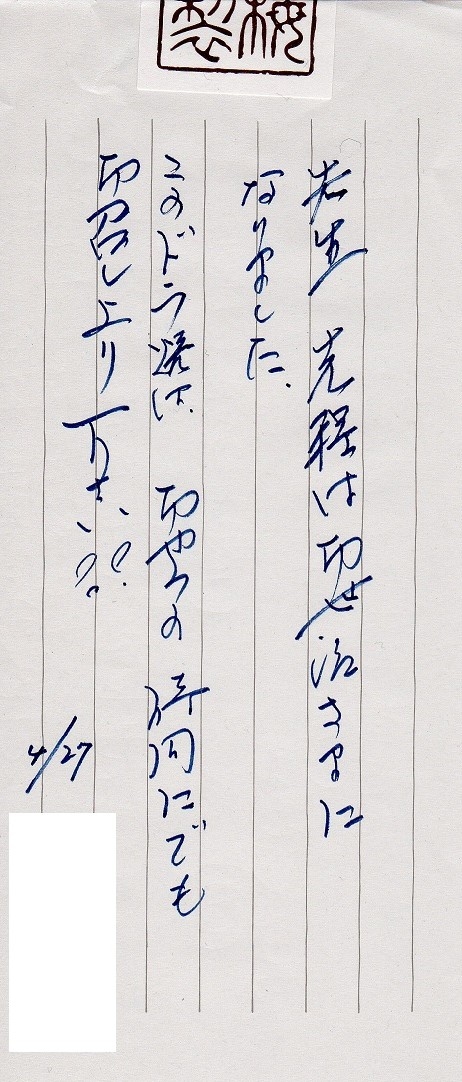 梅
製
先生 先程は御世話さまに
なりました。
このドラ焼は、御やつの時間にでも
御召し上り下さい!!
4/27